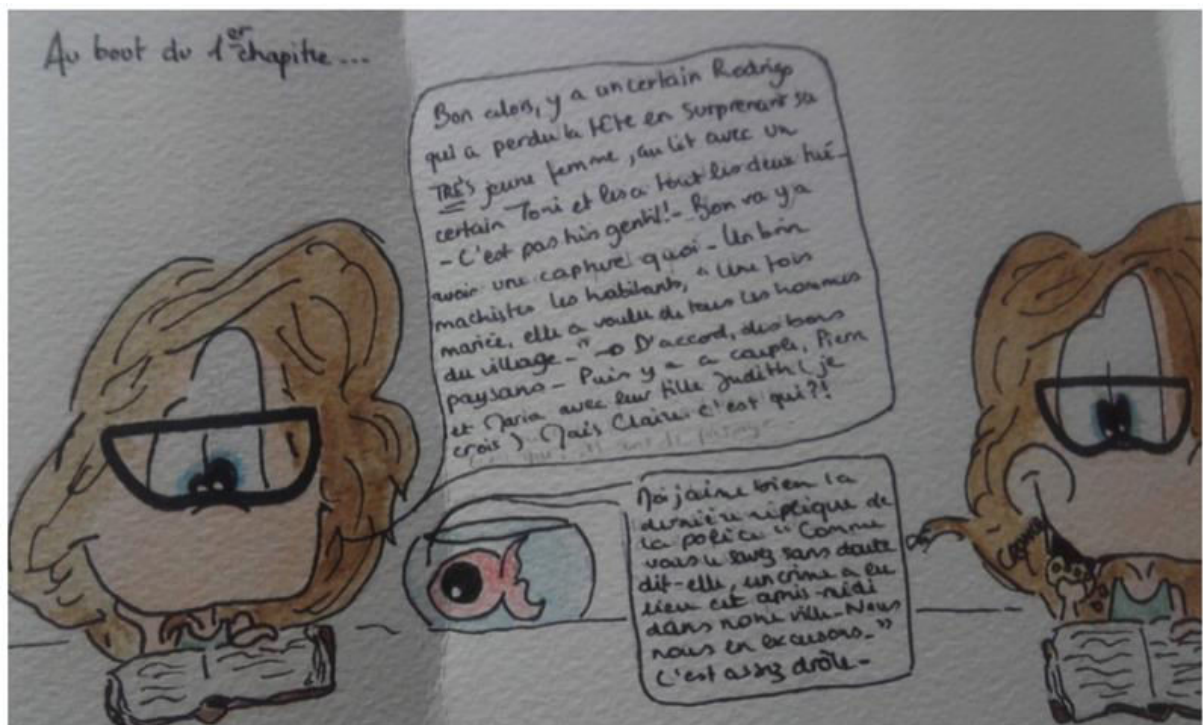 Au bout du 1er chapitre...
Bon alors, y a un certain Rodrigo
qui a perdu la tête en surprenant sa
TRÈS jeune femme, au lit avec un
certain Toni et les a tout les deux tué-
- C'est pas très gentil! - Bon va y a
avoir une capture quoi - Un brin
machistes les habitants, "Une fois
mariée, elle a voulu de tous les hommes
du village-" → D'accord, des bons
paysans - Puis y a a couple, Pierre
et Maria avec leur fille Judith (je
crois) Mais Claire c'est qui?!
Moi j'aime bien la
dernière réplique de
la police "Comme
vous le savez sans doute
dit-elle, un crime a eu
lieu cet après-midi
dans notre ville - Nous
nous en excusons-"
C'est assez drôle-